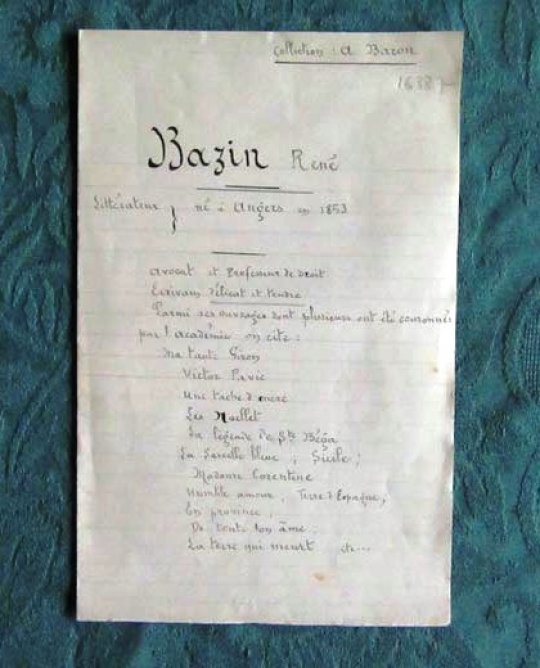 Collection : A Baron
1638
Bazin René
Littérateur } né à Angers en 1853
Avocat et Professeur de Droit
Ecrivain délicat et tendre
Parmi ses ouvrages dont plusieurs ont été couronnés
par l'Académie on cite :
Ma tante Giron
Victor Pavie
Une tache d'encre
Les Noellet
La légende de Ste Béga
La Sarcelle bleue ; Sicile ;
Madame Corentine
Humble amour, Terre d'Espagne,
En province ;
De toute son âme,
La terre qui meurt etc...